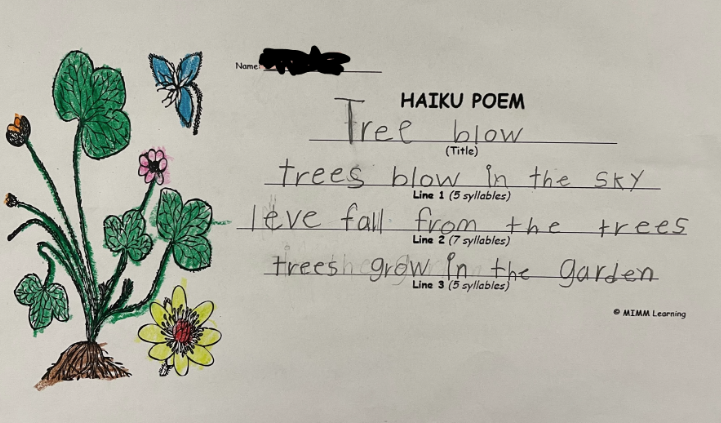 Name:
HAIKU POEM
Tree blow
(Title)
trees blow in the sky
Line 1 (5 syllables)
leve fall from the trees
Line 2 (7 syllables)
trees grow in the garden
Line 3 (5 syllables)
© MIMM Learning